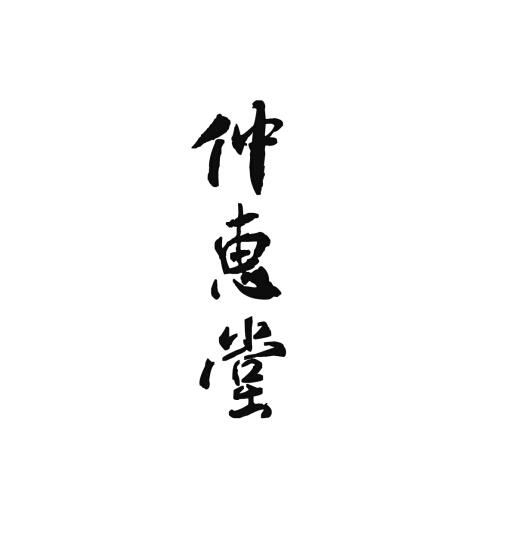 仲惠堂